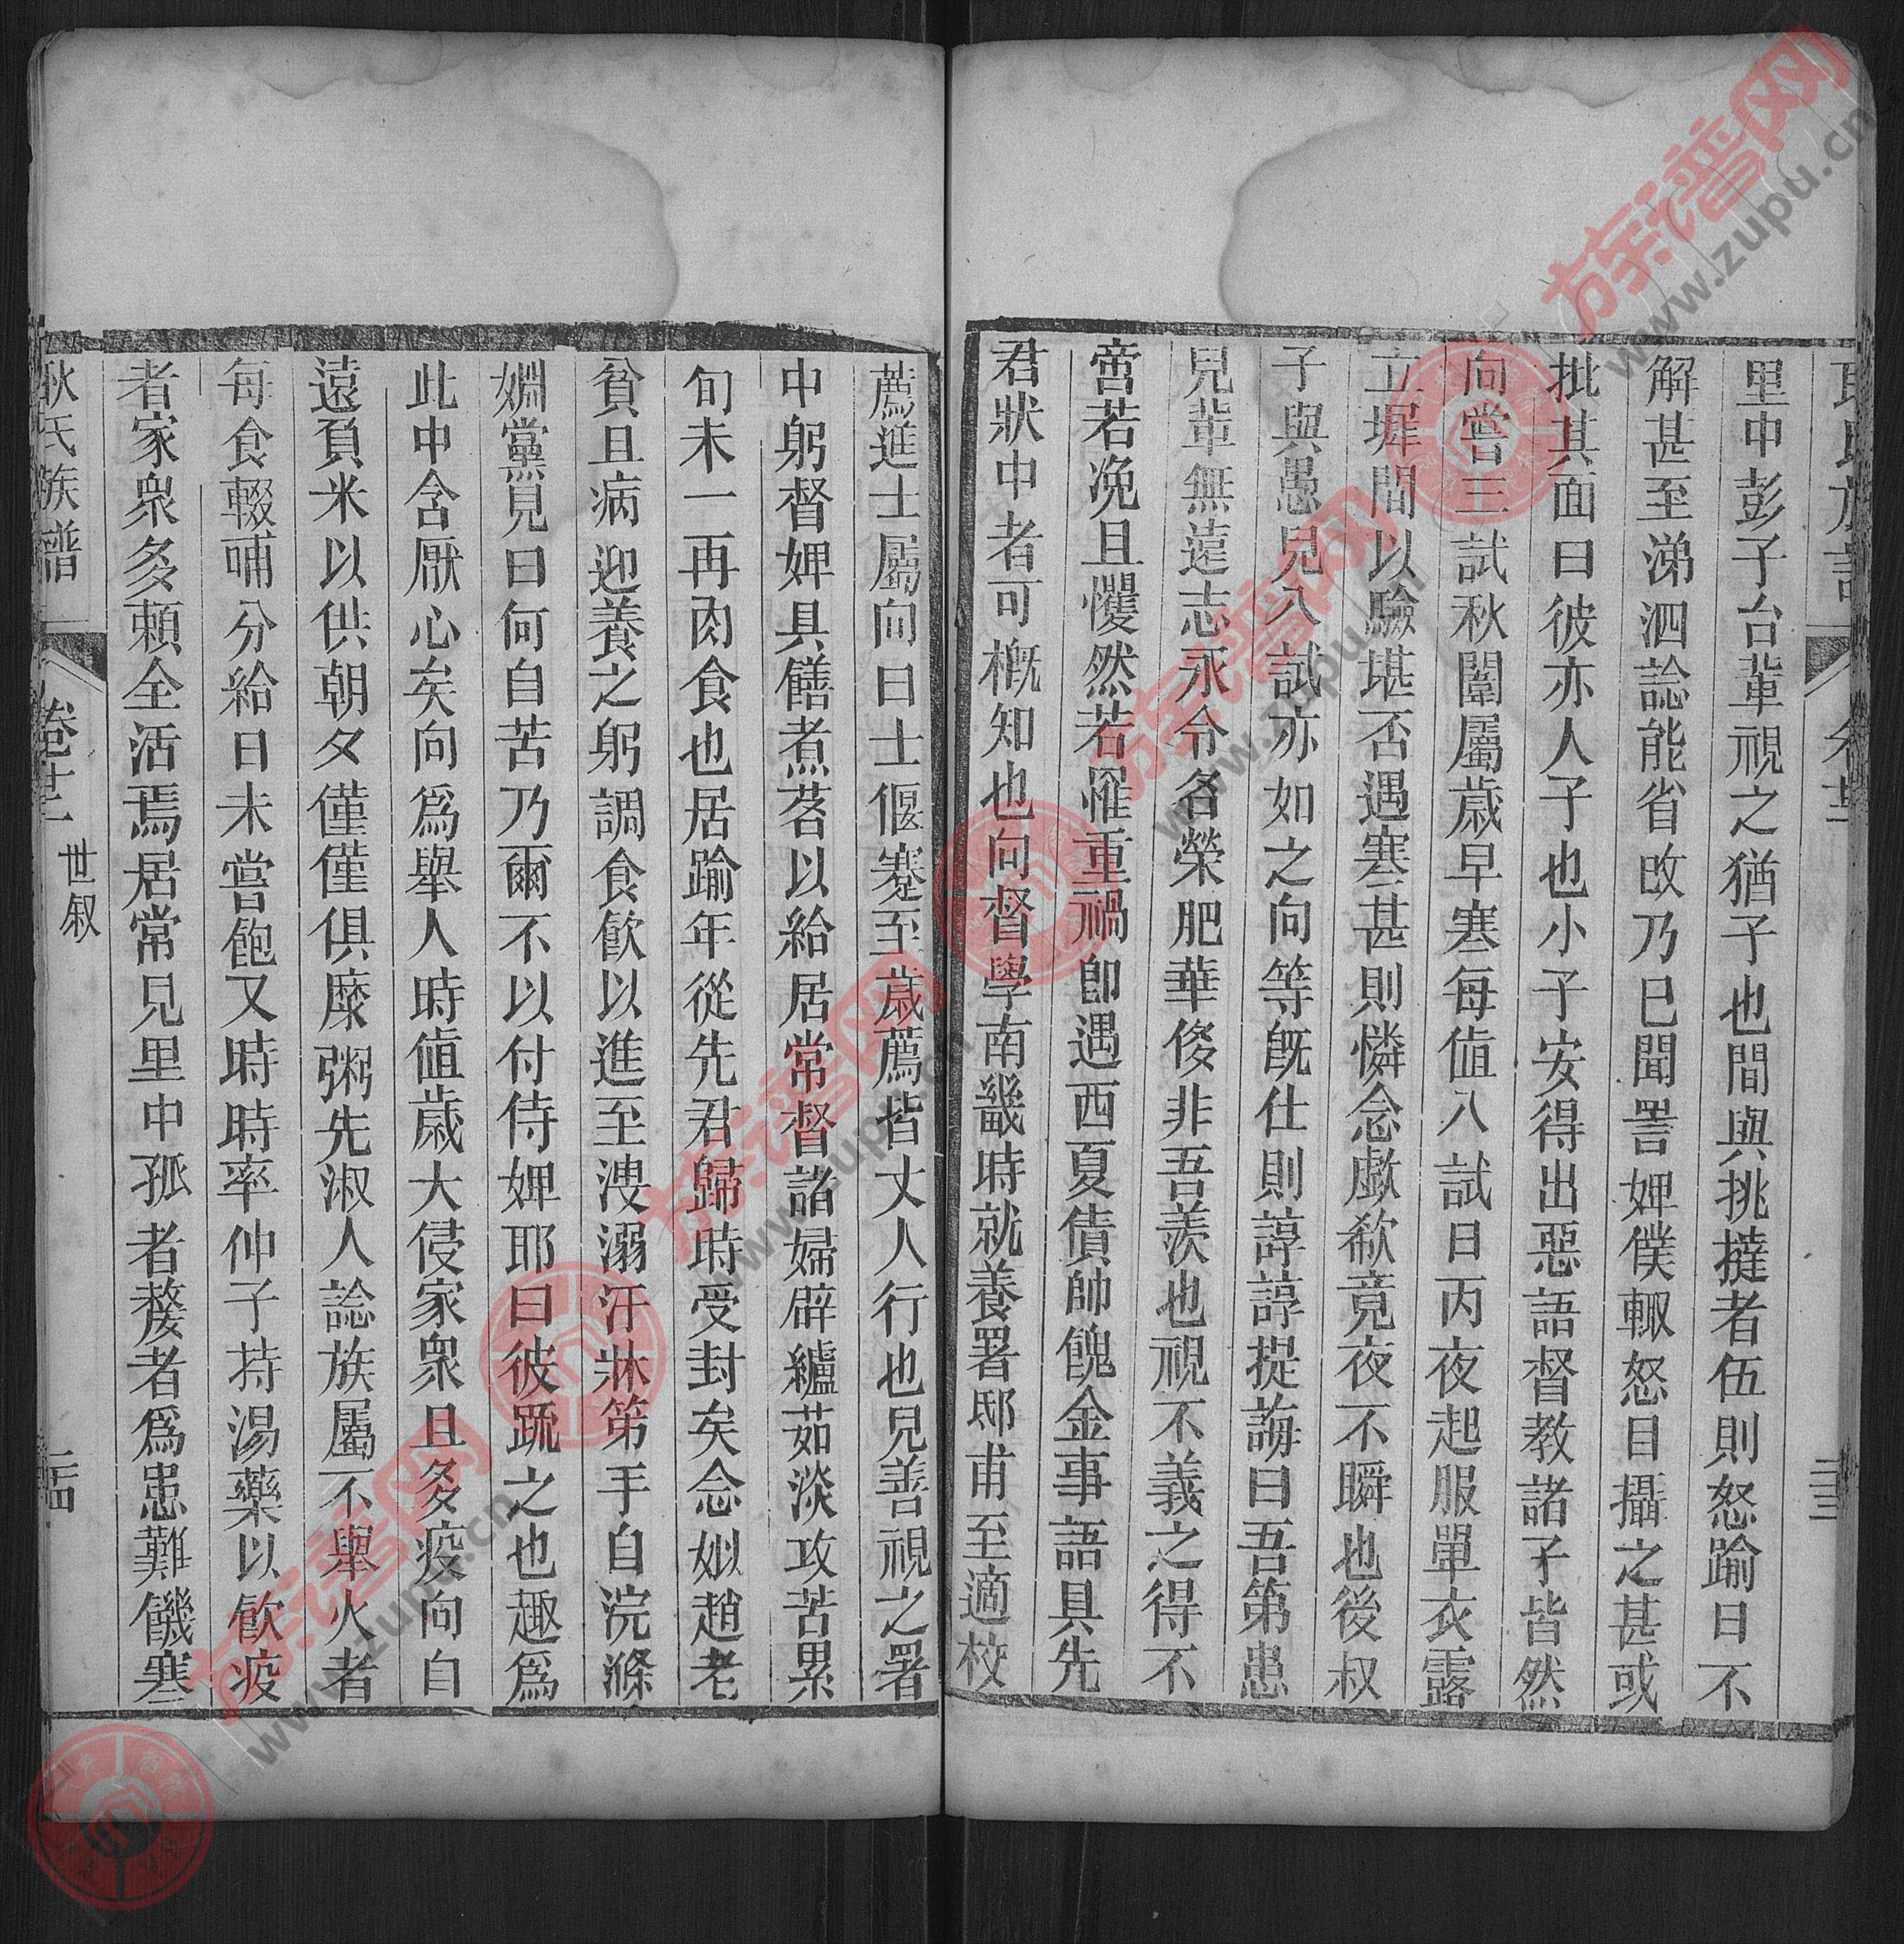 耿氏族譜
卷十二
二十三
里中彭子台輩視之猶子也間與挑撻者伍則怒踰日不
解甚至涕泗諗能省改乃已聞詈婢僕輙怒目攝之甚或
批其面曰彼亦人子也小子安得出惡語督教諸子皆然
向嘗三試秋闈屬歲早寒每值入試日丙夜起服單衣露
立墀間以驗堪否遇寒甚則憐念歔欷竟夜不瞬也後叔
子與愚兒入試亦如之向等旣仕則諄諄提誨曰吾第患
兒輩無遠志永令名榮肥華侈非吾羨也視不義之得不
啻若凂且懼然若罹重禍卽遇西夏債帥餽金事語具先
君狀中者可槪知也向督學南畿時就養署邸甫至適校
薦進士屬向曰士偃蹇至歲薦皆丈人行也兒善視之署
中躬督婢具饍煮茗以給居常督諸婦辟纑茹淡攻苦累
旬未一再肉食也居踰年從先君歸時受封矣念姒趙老
貧且病迎養之躬調食飮以進至洩溺汙牀第手自浣滌
婣黨見曰何自苦乃爾不以付侍婢耶曰彼䟽之也趣爲
此中含厭心矣向爲舉人時值歲大侵家衆且多疫向自
遠負米以供朝夕僅僅俱糜粥先淑人諗族屬不舉火者
每食輟哺分給日未嘗飽又時時率仲子持湯藥以飮疫
者家衆多賴全活焉居常見里中孤者嫠者爲患難饑寒
耿氏族譜
卷十二
世叙
二十四
族谱网
www.zupu.cn